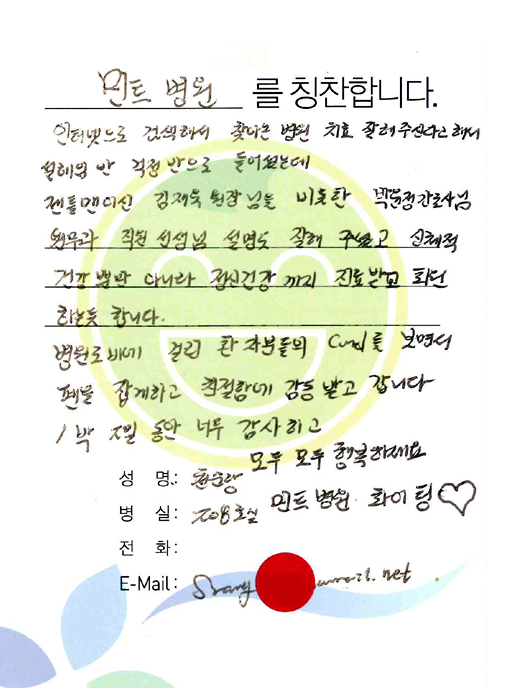 민트 병원 를 칭찬합니다.
인터넷으로 검색해서 찾아온 병원 치료 잘해주신다고 해서
설레임 반 걱정 반으로 들어섰는데
젠틀맨이신 김재욱 원장님을 비롯한 박윤정간호사님
원무과 직원 선생님 설명도 잘해 주셨고 신체적
건강 뿐만 아니라 정신건강 까지 진료받고 회복
하는듯 합니다.
병원로비에 걸린 환자분들의 Card를 보면서
펜을 잡게하고 친절함에 감동 받고 갑니다
1박 2일 동안 너무 감사하고
모두 모두 행복하세요
성 명:
병 실: 208호실 민트병원 화이팅♡
전 화:
E-Mail: .net